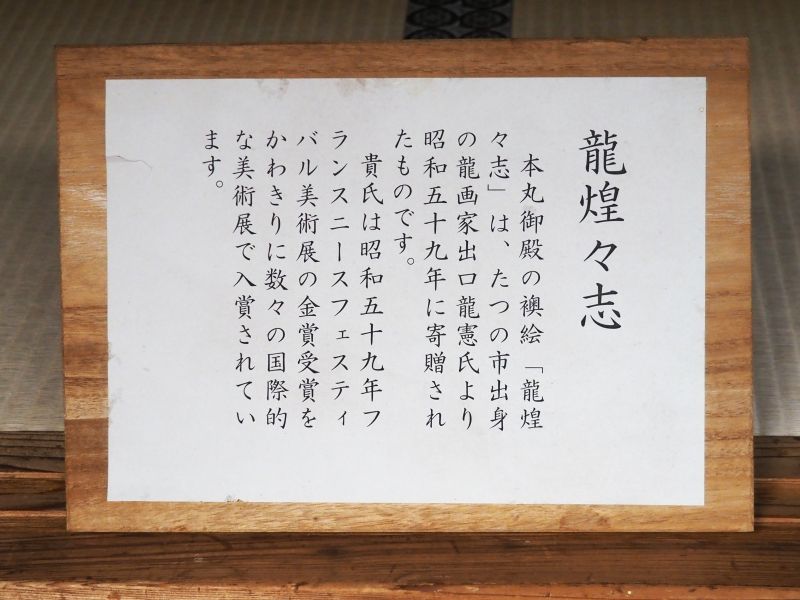 龍煌々志
本丸御殿の襖絵「龍煌
々志」は、たつの市出身
の龍画家出口龍憲氏より
昭和五十九年に寄贈され
たものです。
貴氏は昭和五十九年フ
ランスニースフェスティ
バル美術展の金賞受賞を
かわきりに数々の国際的
な美術展で入賞されてい
ます。